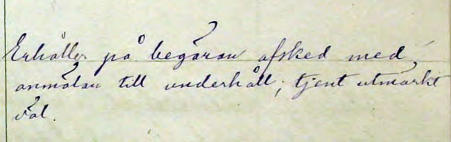 Erhåller på begäran afsked med
anmälan till underhåll; tjent utmärkt
väl.